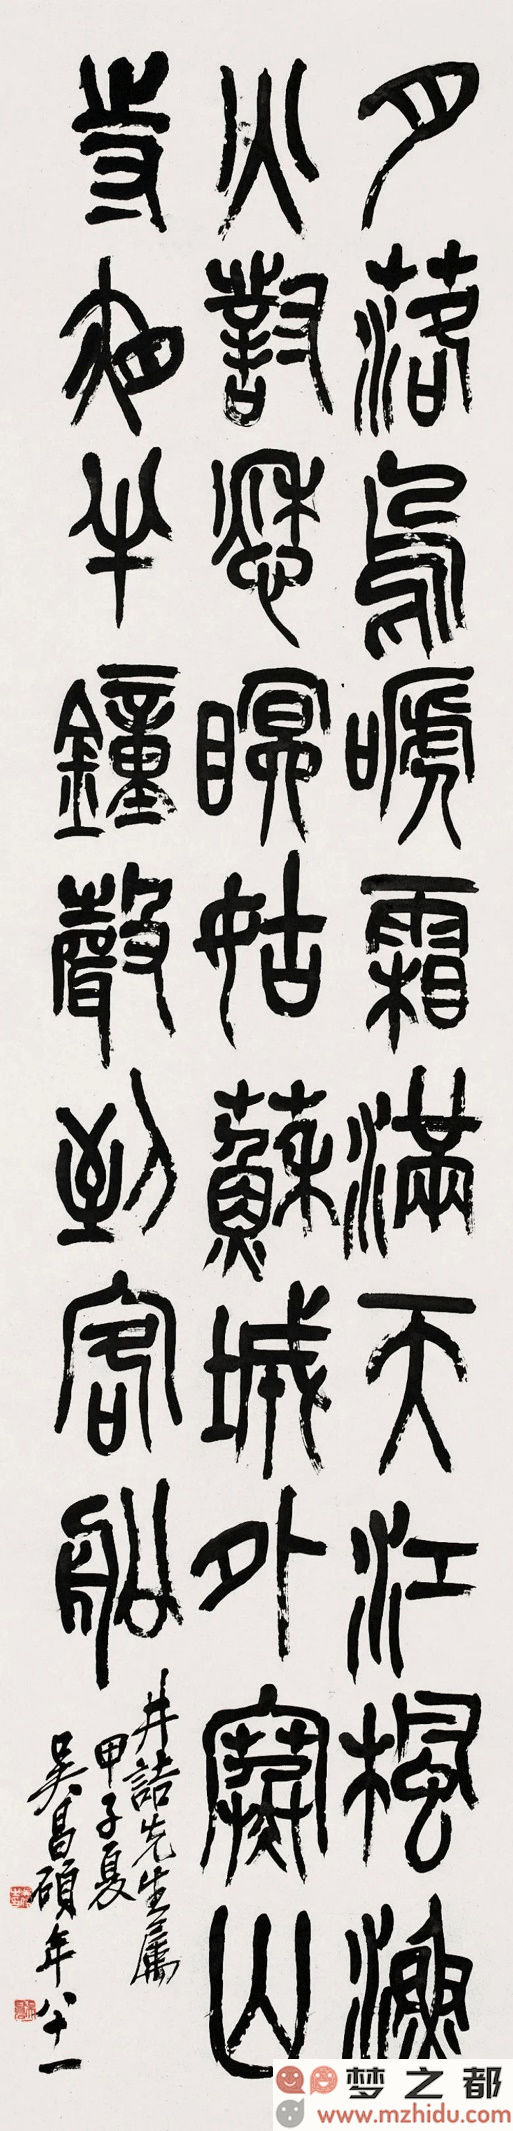 月落烏嗁霜滿天江楓漁
火對愁瞑姑蘇城外寒山
寺夜半鐘聲到客船
井詰先生属
甲子夏
吴昌碩年八十一
梦之都
www.mzhidu.com